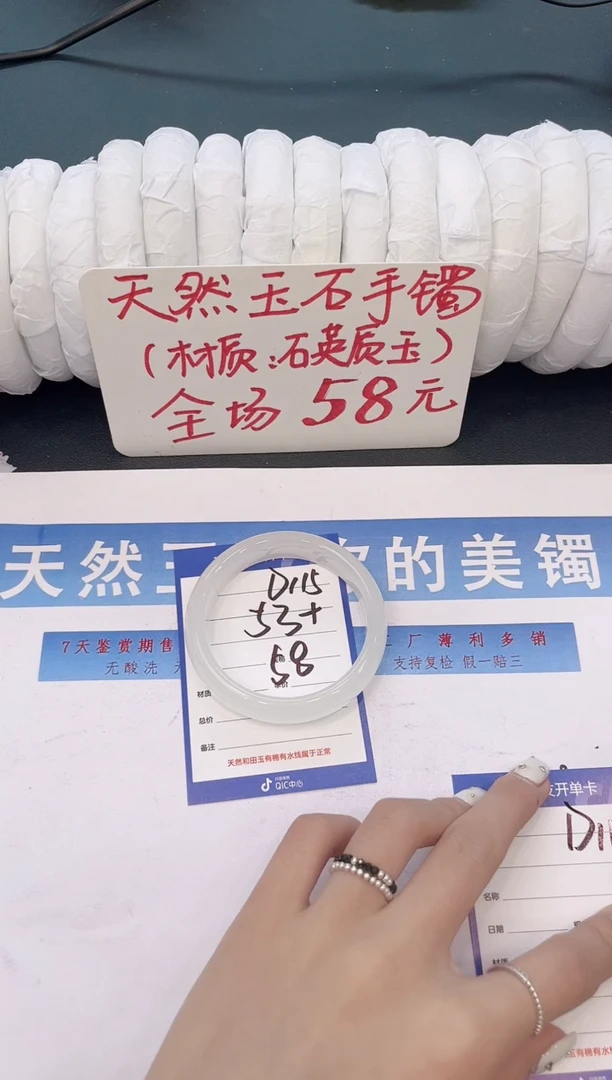 天然玉石手镯
(材质:石英质玉)
全场 58元
天然玉 的美镯
7天鉴赏期售 厂薄利多销
无酸洗 支持复检 假一赔三
D115
53+
58
材质
总价
备注
天然和田玉有棉有水线属于正常
QIC中心
开单卡
D11
名称
日期
材质
有棉有水